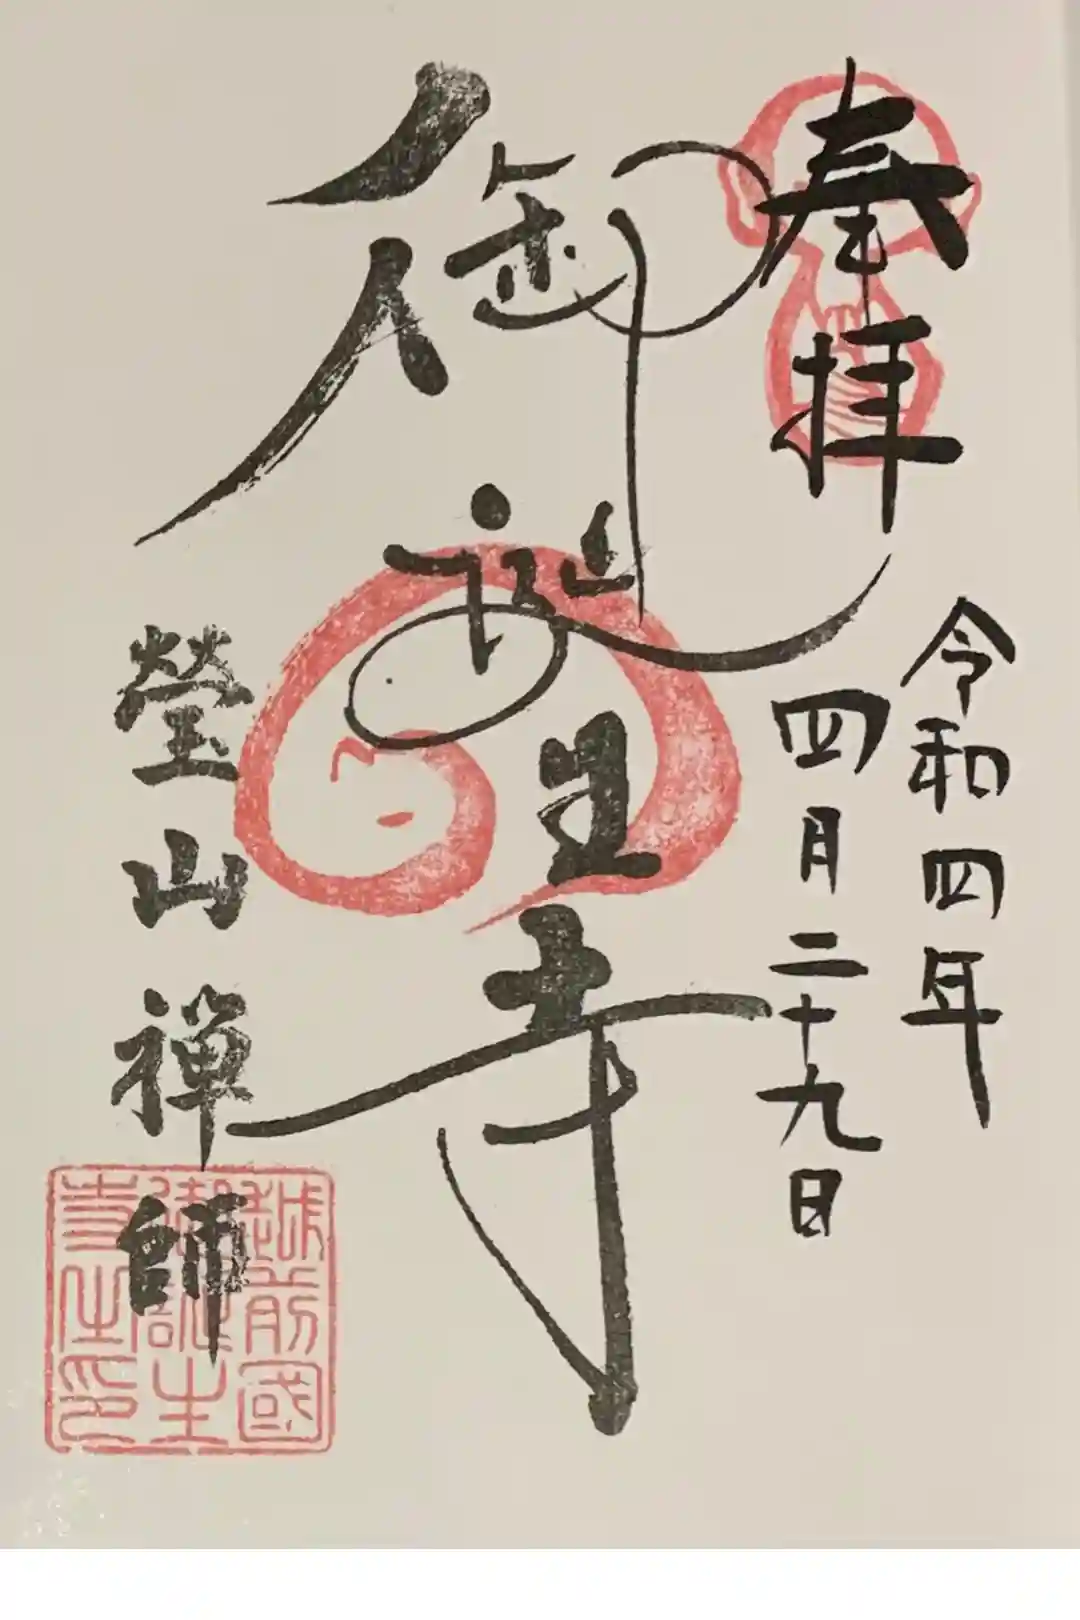 奉拝
令和四年
四月二十九日
御誕生寺
瑩山禅師
越前國
御誕生
寺主印